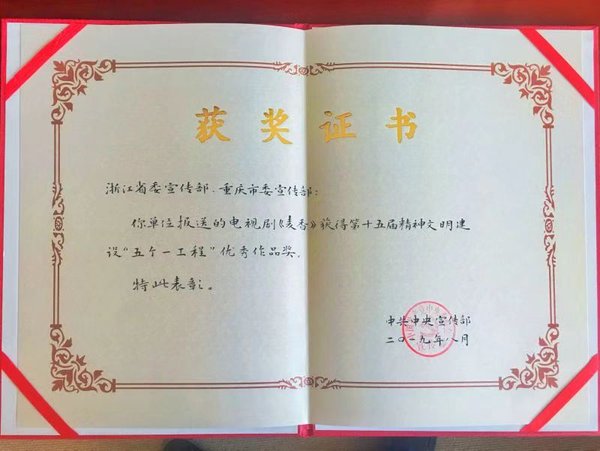 获奖证书
浙江省委宣传部、重庆市委宣传部：
你单位报送的电视剧《麦香》获得第十五届精神文明建
设“五个一工程”优秀作品奖，
特此表彰。
中共中央宣传部
二〇一九年八月